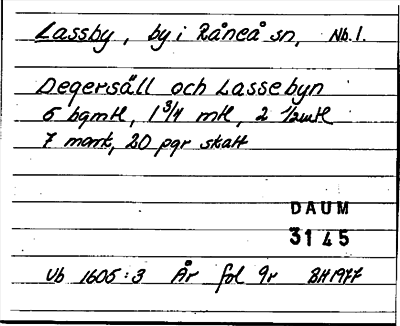 Lassby, by i Råneå sn, Nb.l.
Degersäll och Lassebyn
6 bgmtl, 1 3/4 mtl, 2 1/2mtl
7 mark, 20 pgr skatt
DAUM
3145
Vb 1605:3 År fol 9r BH1977